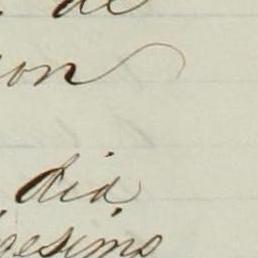 de
on
dia
gesimo